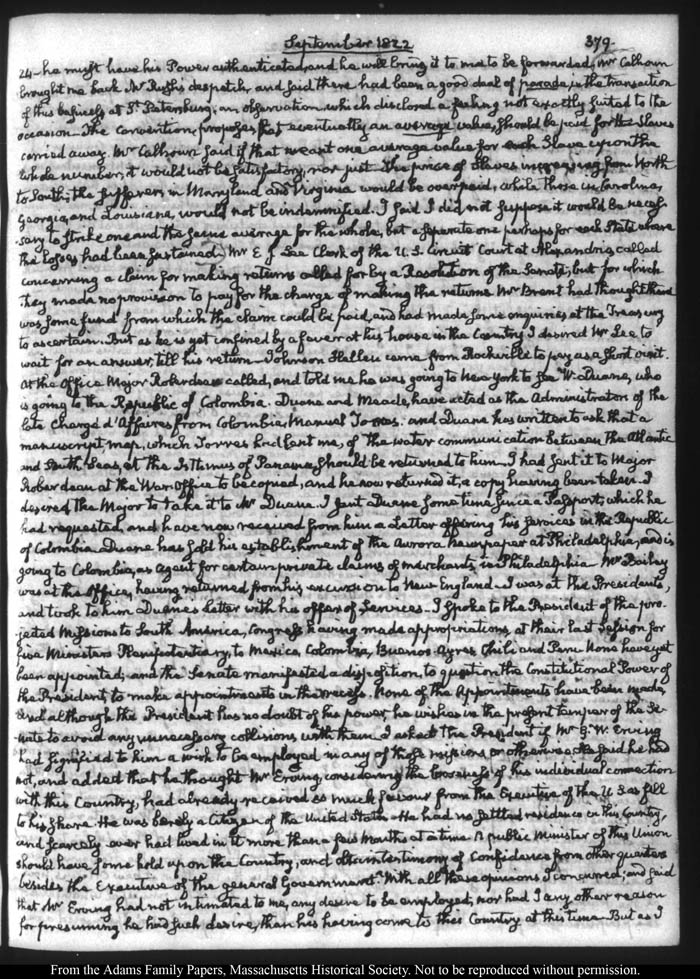 September 1822 379.
24 — he must have his Power authenticated, and he will bring it to me to be forwarded. Mr Calhoun
brought me back Mr Rush's despatch, and said there had been a good deal of parade, in the transaction
of this business at St. Petersburg; an observation which disclosed a feeling not exactly suited to the
occasion. The Convention proposes that eventually an average value, should be paid for the Slaves
carried away. Mr Calhoun said if that meant one average value for each Slave upon the
whole number, it would not be satisfactory, nor just. The price of Slaves increasing from North
to South; the sufferers in Maryland and Virginia would be overpaid, while those in Carolina,
Georgia, and Louisiana, would not be indemnified. I said I did not suppose it would be neces-
-sary to strike one and the same average for the whole, but a separate one perhaps for each State where
the losses had been sustained. Mr E. J. Lee Clerk of the U.S. Circuit Court at Alexandria, called
concerning a claim for making returns called for by a Resolution of the Senate; but for which
they made no provision to pay for the charge of making the returns. Mr Brent had thought there
was some fund from which the claim could be paid, and had made some enquiries at the Treasury
to ascertain. But as he is yet confined by a fever at his house in the Country I desired Mr Lee to
wait for an answer, till his return. Johnson Hellen came from Rockville to pay us a short visit.
At the Office Major Roberdeau called, and told me he was going to New York to see W. Duane, who
is going to the Republic of Colombia. Duane and Meade, have acted as the Administrators of the
late Chargé d'Affaires from Colombia, Manuel Torres. and Duane has written to ask that a
manuscript map, which Torres had lent me, of the water communication between the Atlantic
and South Seas, at the Isthmus of Panama, should be returned to him. I had sent it to Major
Roberdeau at the War Office to be copied, and he now returned it, a copy having been taken. I
desired the Major to take it to Mr Duane. I sent Duane sometime since a Passport, which he
had requested, and have now received from him a Letter offering his services in the Republic
of Colombia. Duane has sold his establishment of the Aurora newspaper at Philadelphia, and is
going to Colombia, as Agent for certain private claims of merchants, in Philadelphia. Mr Bailey
was at the Office, having returned from his excursion to New England. I was at the President's,
and took to him Duane's Letter with his offer of Services. I spoke to the President of the pro-
-jected Missions to South America, Congress having made appropriations, at their last Session for
five Ministers Plenipotentiary, to Mexico, Colombia, Buenos Ayres, Chili and Peru. None have yet
been appointed; and the Senate manifested a disposition, to question the Constitutional Power of
the President, to make appointments in the recess. None of the Appointments have been made,
and although the President has no doubt of his power, he wishes in the present temper of the Se-
-nate to avoid any unnecessary collisions with them. I asked the President if Mr G. W. Erving
had signified to him a wish to be employed in any of those missions or otherwise. He said he had
not, and added that he thought Mr Erving, considering the looseness of his individual connection
with this Country, had already received as much favour from the Executive of the U.S. as fell
to his share. He was barely a Citizen of the United States. He had no settled residence in this Country,
and scarcely ever had lived in it more than a few Months at a time. A public Minister of this Union
should have some hold upon the Country, and obtain testimony of confidence from other quarters
besides the Executive of the general Government. With all these opinions I concurred; and said
that Mr Erving had not intimated to me, any desire to be employed; nor had I any other reason
for presuming he had such desire, than his having come to this Country at this time. But as I
From the Adams Family Papers, Massachusetts Historical Society. Not to be reproduced without permission.